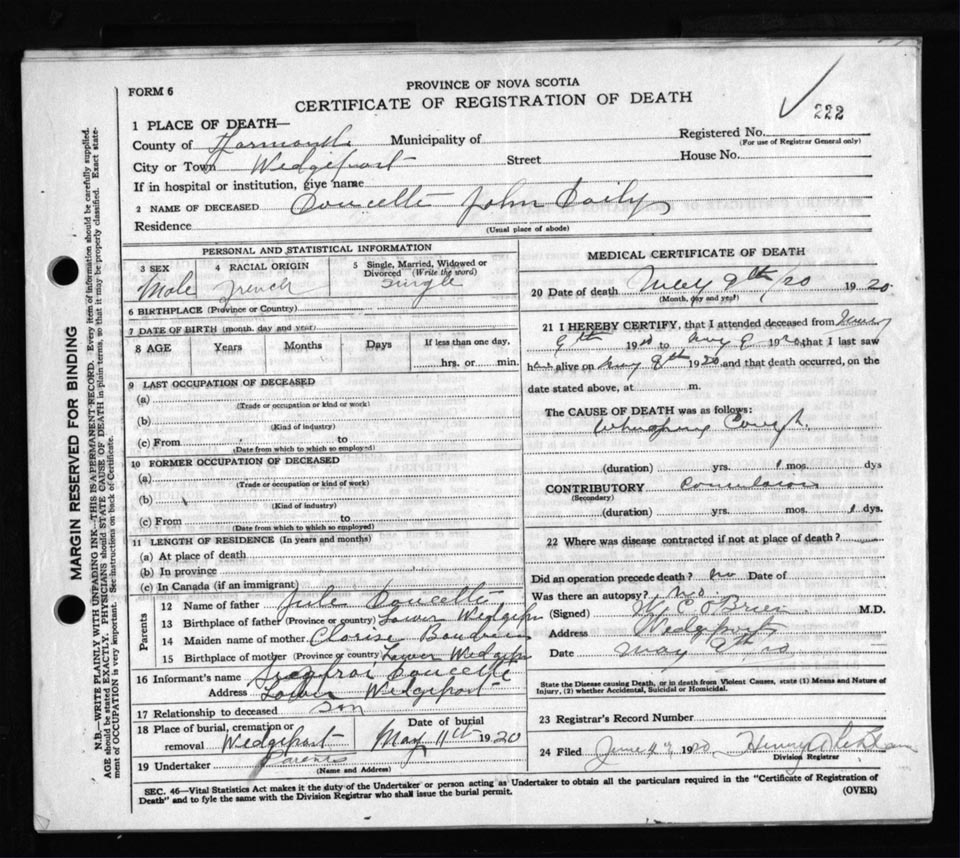 PROVINCE OF NOVA SCOTIA
FORM 6
CERTIFICATE OF REGISTRATION OF DEATH
222
1 PLACE OF DEATH—
County of Yarmouth Municipality of
Registered No.
(For use of Registrar General only)
City or Town Wedgeport Street House No.
If in hospital or institution, give name
2 NAME OF DECEASED Doucette John
Residence
(Usual place of abode)
PERSONAL AND STATISTICAL INFORMATION
3 SEX Male
4 RACIAL ORIGIN French
5 Single, Married, Widowed or Divorced (Write the word) Single
6 BIRTHPLACE (Province or Country)
7 DATE OF BIRTH (month, day and year)
8 AGE Years Months Days If less than one day, hrs. or min.
9 LAST OCCUPATION OF DECEASED
(a)
(Trade or occupation or kind or work)
(b)
(Kind of industry)
(c) From to
(Date from which to which so employed)
10 FORMER OCCUPATION OF DECEASED
(a)
(Trade or occupation or kind of work)
(b)
(Kind of industry)
(c) From to
(Date from which to which so employed)
11 LENGTH OF RESIDENCE (In years and months)
(a) At place of death
(b) In province
(c) In Canada (if an immigrant)
Parents
12 Name of father Jule Doucette
13 Birthplace of father (Province or country) Lower Wedgepo
14 Maiden name of mother
15 Birthplace of mother (Province or country) Lower Wedgep
16 Informant's name Doucette
Address Lower Wedgeport
17 Relationship to deceased Son
18 Place of burial, cremation or removal Wedgeport
Date of burial May 11th 1920
19 Undertaker Parents
(Name and Address)
MEDICAL CERTIFICATE OF DEATH
20 Date of death May 9th/20 1920
(Month, day and year)
21 I HEREBY CERTIFY, that I attended deceased from
9th 1920 to May 9 1920 that I last saw
h alive on May 8th 1920 and that death occurred, on the
date stated above, at m.
The CAUSE OF DEATH was as follows:
Whooping Cough.
(duration) yrs. 1 mos. dys
CONTRIBUTORY Convulsions
(Secondary)
(duration) yrs. mos. 1 dys.
22 Where was disease contracted if not at place of death?
Did an operation precede death? no Date of
Was there an autopsy? no
(Signed) W. C. O'Brien M.D.
Address Wedgeport
Date May 9th 20
State the Disease causing Death, or in death from Violent Causes, state (1) Means and Nature of
Injury, (2) whether Accidental, Suicidal or Homicidal.
23 Registrar's Record Number
24 Filed June 4 1920 Henry A
Division Registrar
SEC. 46—Vital Statistics Act makes it the duty of the Undertaker or person acting as Undertaker to obtain all the particulars required in the "Certificate of Registration of
Death" and to fyle the same with the Division Registrar who shall issue the burial permit.
(OVER)
MARGIN RESERVED FOR BINDING
N.B.—WRITE PLAINLY WITH UNFADING INK—THIS IS A PERMANENT RECORD. Every item of information should be carefully supplied.
AGE should be stated EXACTLY. PHYSICIANS should STATE CAUSE OF DEATH in plain terms, so that it may be properly classified. Exact state-
ment of OCCUPATION is very important. See instructions on back of Certificate.